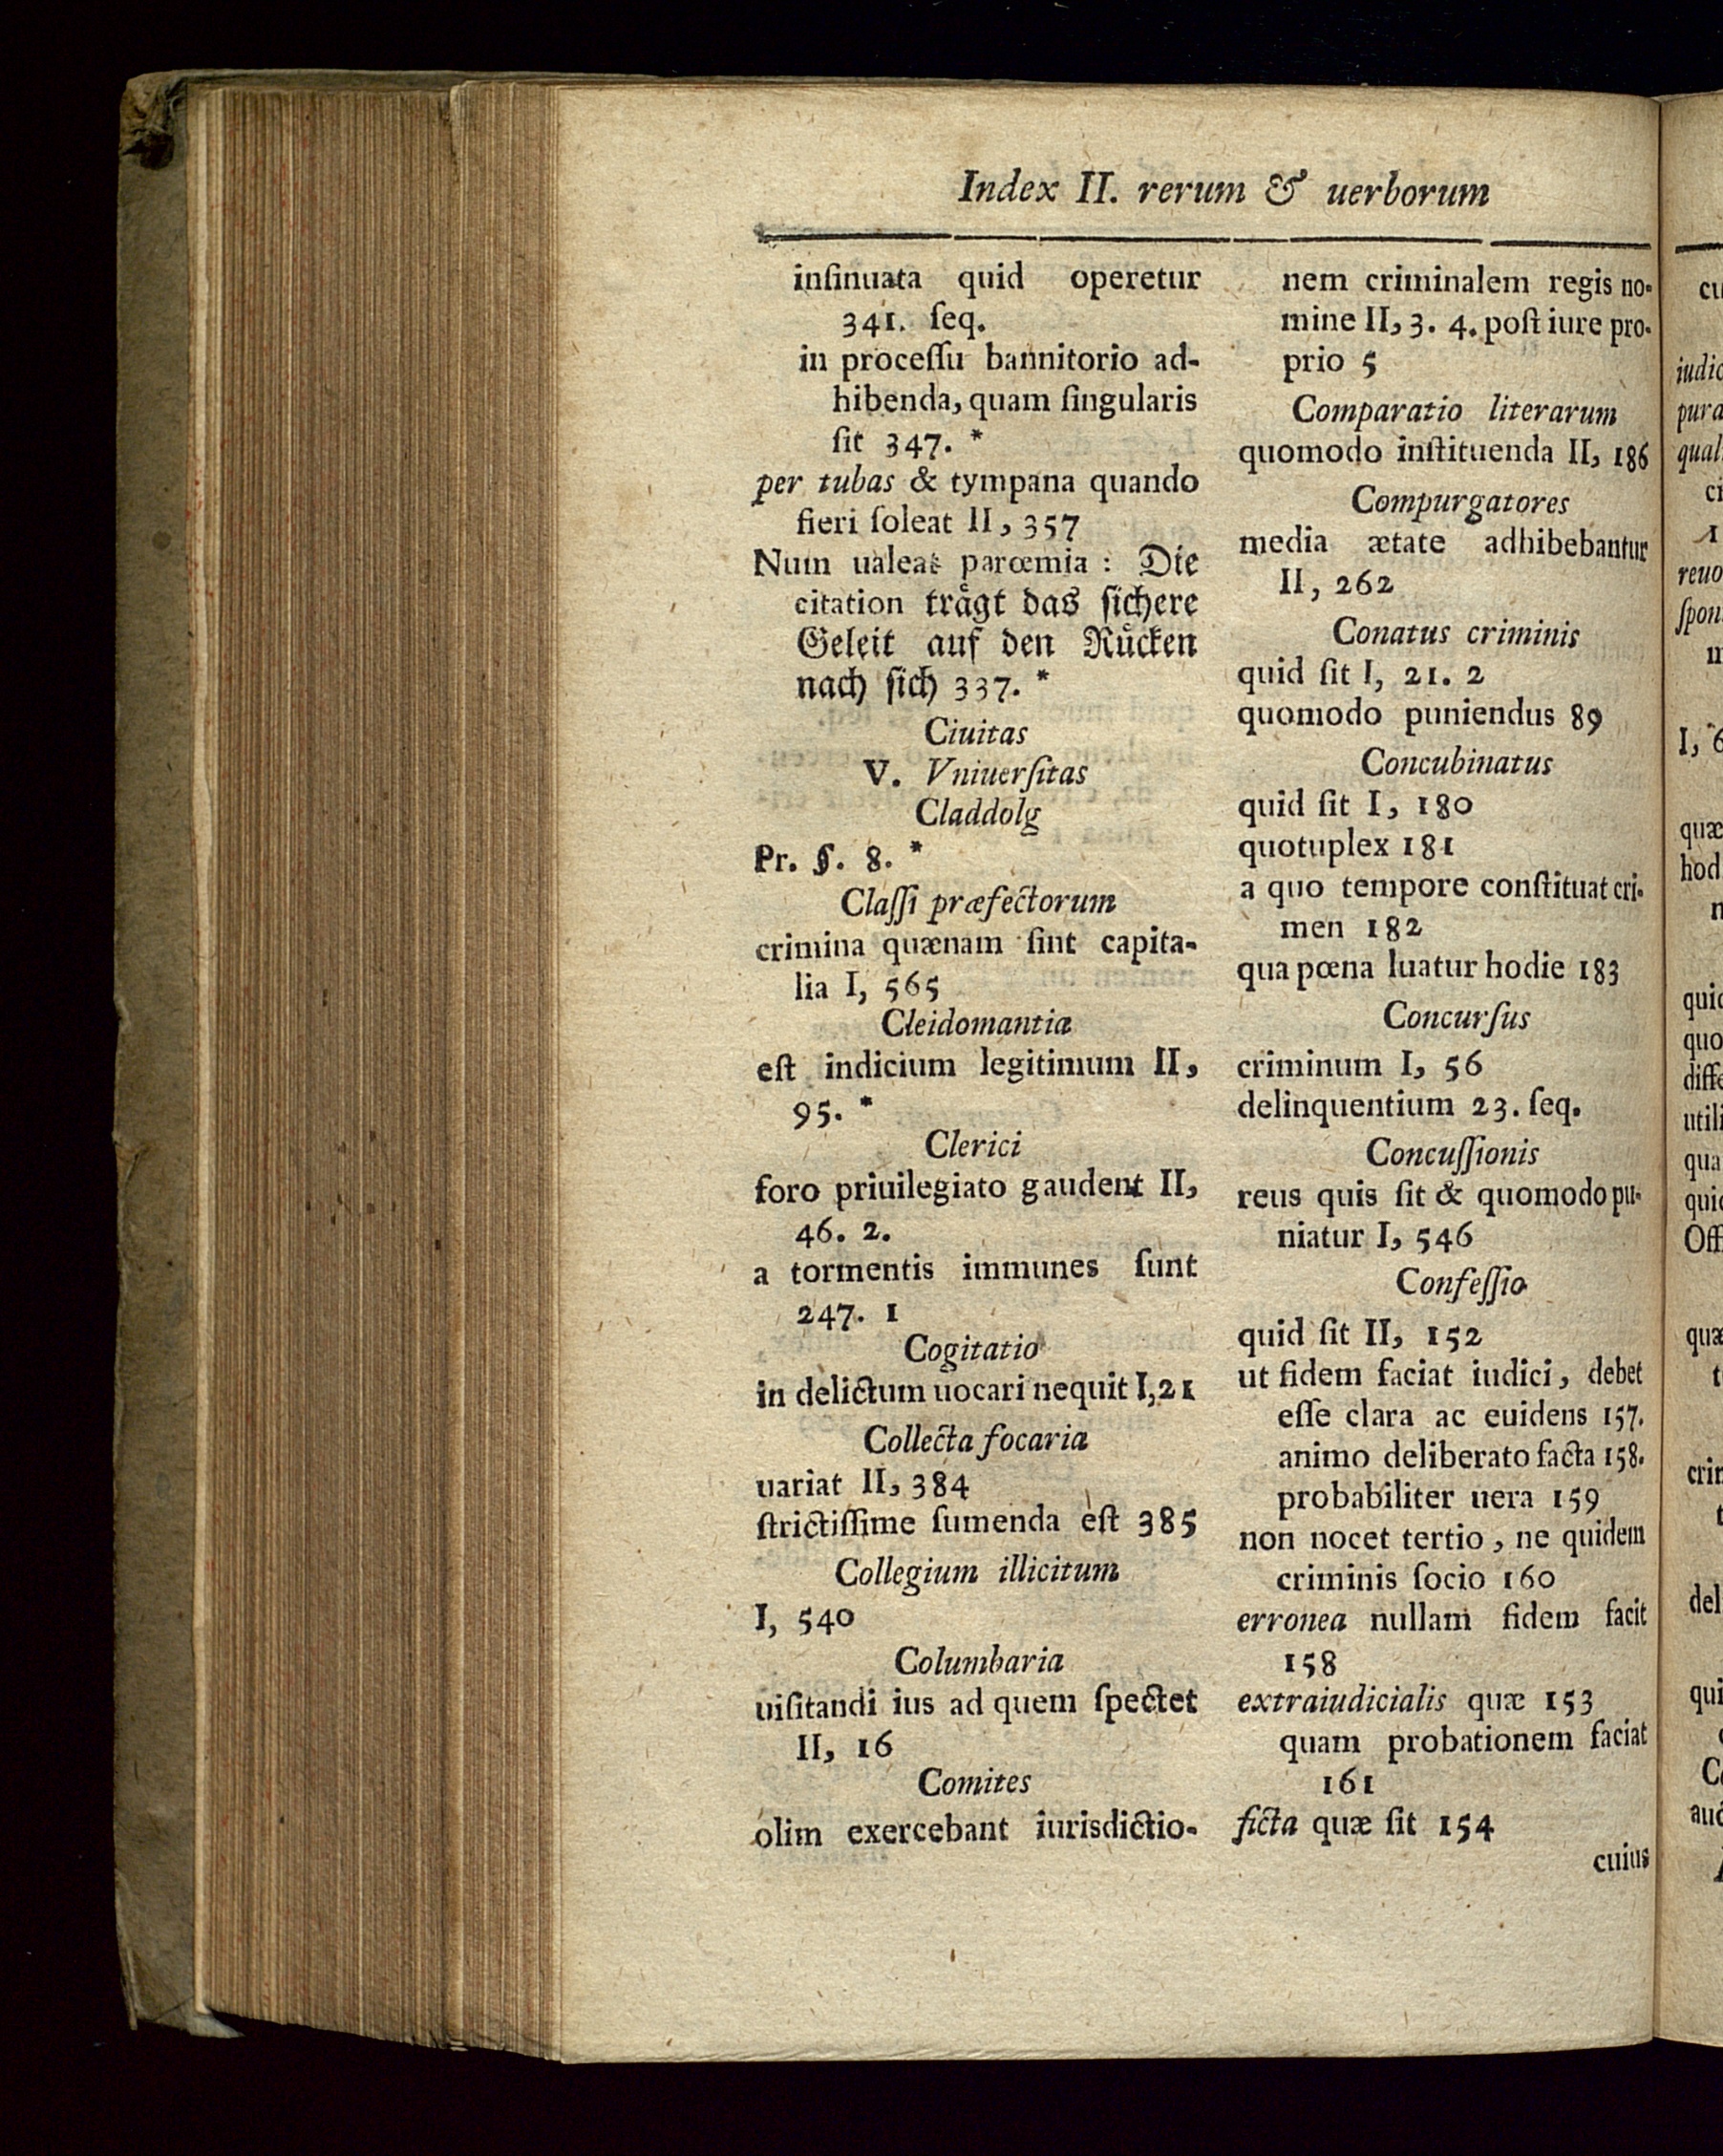 Index II. rerum & uerborum
inſinuata quid operetur
341. ſeq.
in proceſſu bannitorio ad-
hibenda, quam ſingularis
ſit 347. *
per tubas & tympana quando
fieri ſoleat II, 357
Num ualeat parœmia : Die
citation trågt das ſichere
Geleit auf den Růcken
nach ſich 337. *
Ciuitas
V. Vniuerſitas
Claddolg
Pr. §. 8. *
Claſſi præfectorum
crimina quænam ſint capita-
lia I, 565
Cleidomantia
eſt indicium legitimum II,
95. *
Clerici
foro priuilegiato gaudent II,
46. 2.
a tormentis immunes ſunt
247. 1
Cogitatio
in delictum uocari nequit I, 21
Collecta focaria
uariat II, 384
ſtrictiſſime ſumenda eſt 385
Collegium illicitum
I, 540
Columbaria
uiſitandi ius ad quem ſpectet
II, 16
Comites
olim exercebant iurisdictio-
nem criminalem regis no-
mine II, 3. 4. poſt iure pro-
prio 5
Comparatio literarum
quomodo inſtituenda II, 186
Compurgatores
media ætate adhibebantur
II, 262
Conatus criminis
quid ſit I, 21. 2
quomodo puniendus 89
Concubinatus
quid ſit I, 180
quotuplex 181
a quo tempore conſtituat cri-
men 182
qua pœna luatur hodie 183
Concurſus
criminum I, 56
delinquentium 23. ſeq.
Concuſſionis
reus quis ſit & quomodo pu-
niatur I, 546
Confeſſio
quid ſit II, 152
ut fidem faciat iudici, debet
eſſe clara ac euidens 157.
animo deliberato facta 158.
probabiliter uera 159
non nocet tertio, ne quidem
criminis ſocio 160
erronea nullam fidem facit
158
extraiudicialis quæ 153
quam probationem faciat
161
ficta quæ ſit 154
cuius